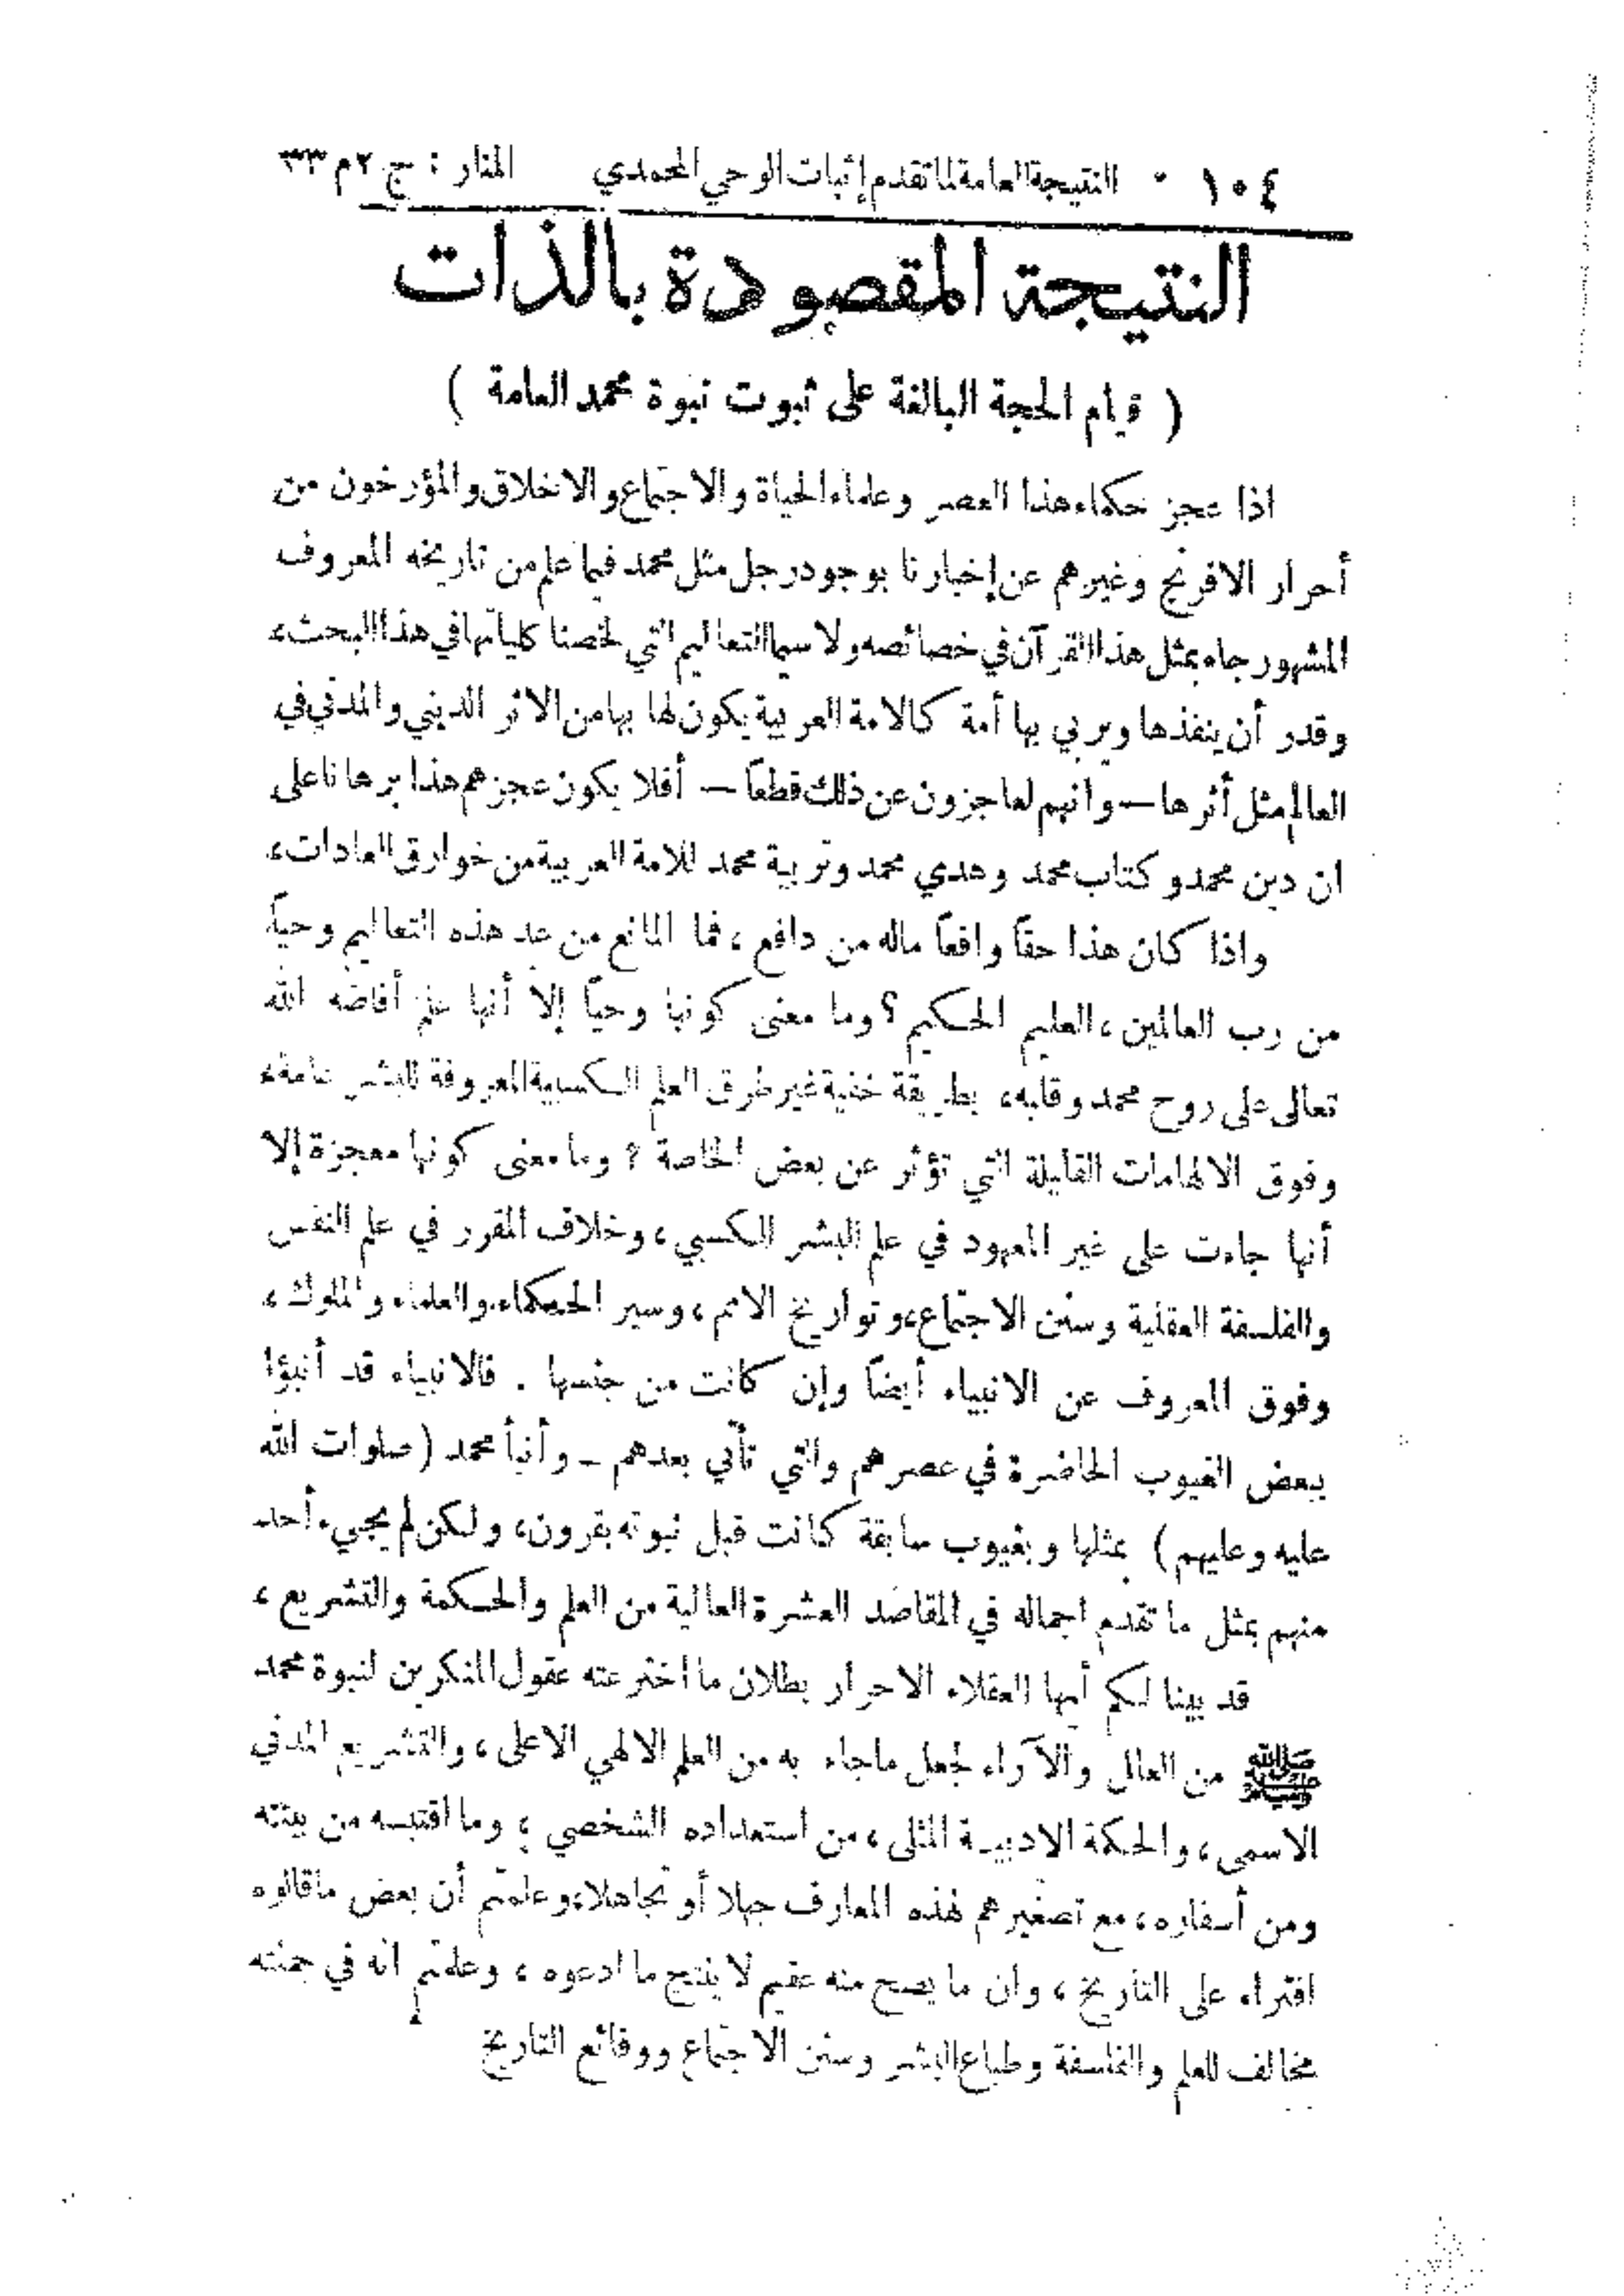 ١٠٤ النتيجة العامة لما تقدم إثبات الوحي المحمدي المنار : ج ٢ م ٣٣
النتيجة المقصودة بالذات
( قيام الحجة البالغة على ثبوت نبوة محمد العامة )
اذا عجز حكماء هذا العصر وعلماء الحياة والاجتماع والاخلاق والمؤرخون من
أحرار الافرنج وغيرهم عن إخبارنا بوجود رجل مثل محمد فيما علم من تاريخه المعروف
المشهور جاء بمثل هذا القرآن في خصائصه ولا سيما التعاليم التي لخصنا كلياتها في هذا البحث،
وقدر أن ينفذها ويربي بها أمة كالامة العربية يكون لها بها من الاثر الديني والمدني في
العالم مثل أثرها — وانهم لعاجزون عن ذلك قطعاً — أفلا يكون عجزهم هذا برهانا على
ان دين محمد وكتاب محمد وهدي محمد وتربية محمد للامة العربية من خوارق العادات،
واذا كان هذا حقاً واقعاً ماله من دافع ، فما المانع من عد هذه التعاليم وحياً
من رب العالمين ، العليم الحكيم ؟ وما معنى كونها وحياً إلا أنها علم أفاضه الله
تعالى على روح محمد وقلبه، بطريقة خفية غير طرق العلم الكسبية المعروفة للبشر عامة،
وفوق الالهامات القليلة التي تؤثر عن بعض الخاصة ؟ وما معنى كونها معجزة إلا
أنها جاءت على غير المعهود في علم البشر الكسبي ، وخلاف المقرر في علم النفس
والفلسفة العقلية وسنن الاجتماع، وتواريخ الامم ، وسير الحكماء والعلماء والملوك ،
وفوق المعروف عن الانبياء أيضاً وإن كانت من جنسها . فالانبياء قد أنبؤا
ببعض الغيوب الحاضرة في عصرهم والتي تأتي بعدهم - وأنبأ محمد (صلوات الله
عليه وعليهم) بمثلها وبغيوب سابقة كانت قبل نبوته بقرون، ولكن لم يجيء أحد
منهم بمثل ما تقدم اجماله في المقاصد العشرة العالية من العلم والحكمة والتشريع ،
قد بينا لكم أيها العقلاء الاحرار بطلان ما اخترعته عقول المنكرين لنبوة محمد
ﷺ من العلل والآراء لجعل ماجاء به من العلم الالهي الاعلى ، والتشريع المدني
الاسمى ، والحكمة الادبية المثلى ، من استعداده الشخصي ، وما اقتبسه من بيئته
ومن أسفاره ، مع تصغيرهم لهذه المعارف جهلا أو تجاهلا، وعلمتم أن بعض ماقالوه
افتراء على التأريخ ، وان ما يصح منه عقيم لا ينتج ما ادعوه ، وعلمتم انه في جملته
مخالف للعلم والفلسفة وطباع البشر وسنن الاجتماع ووقائع التاريخ